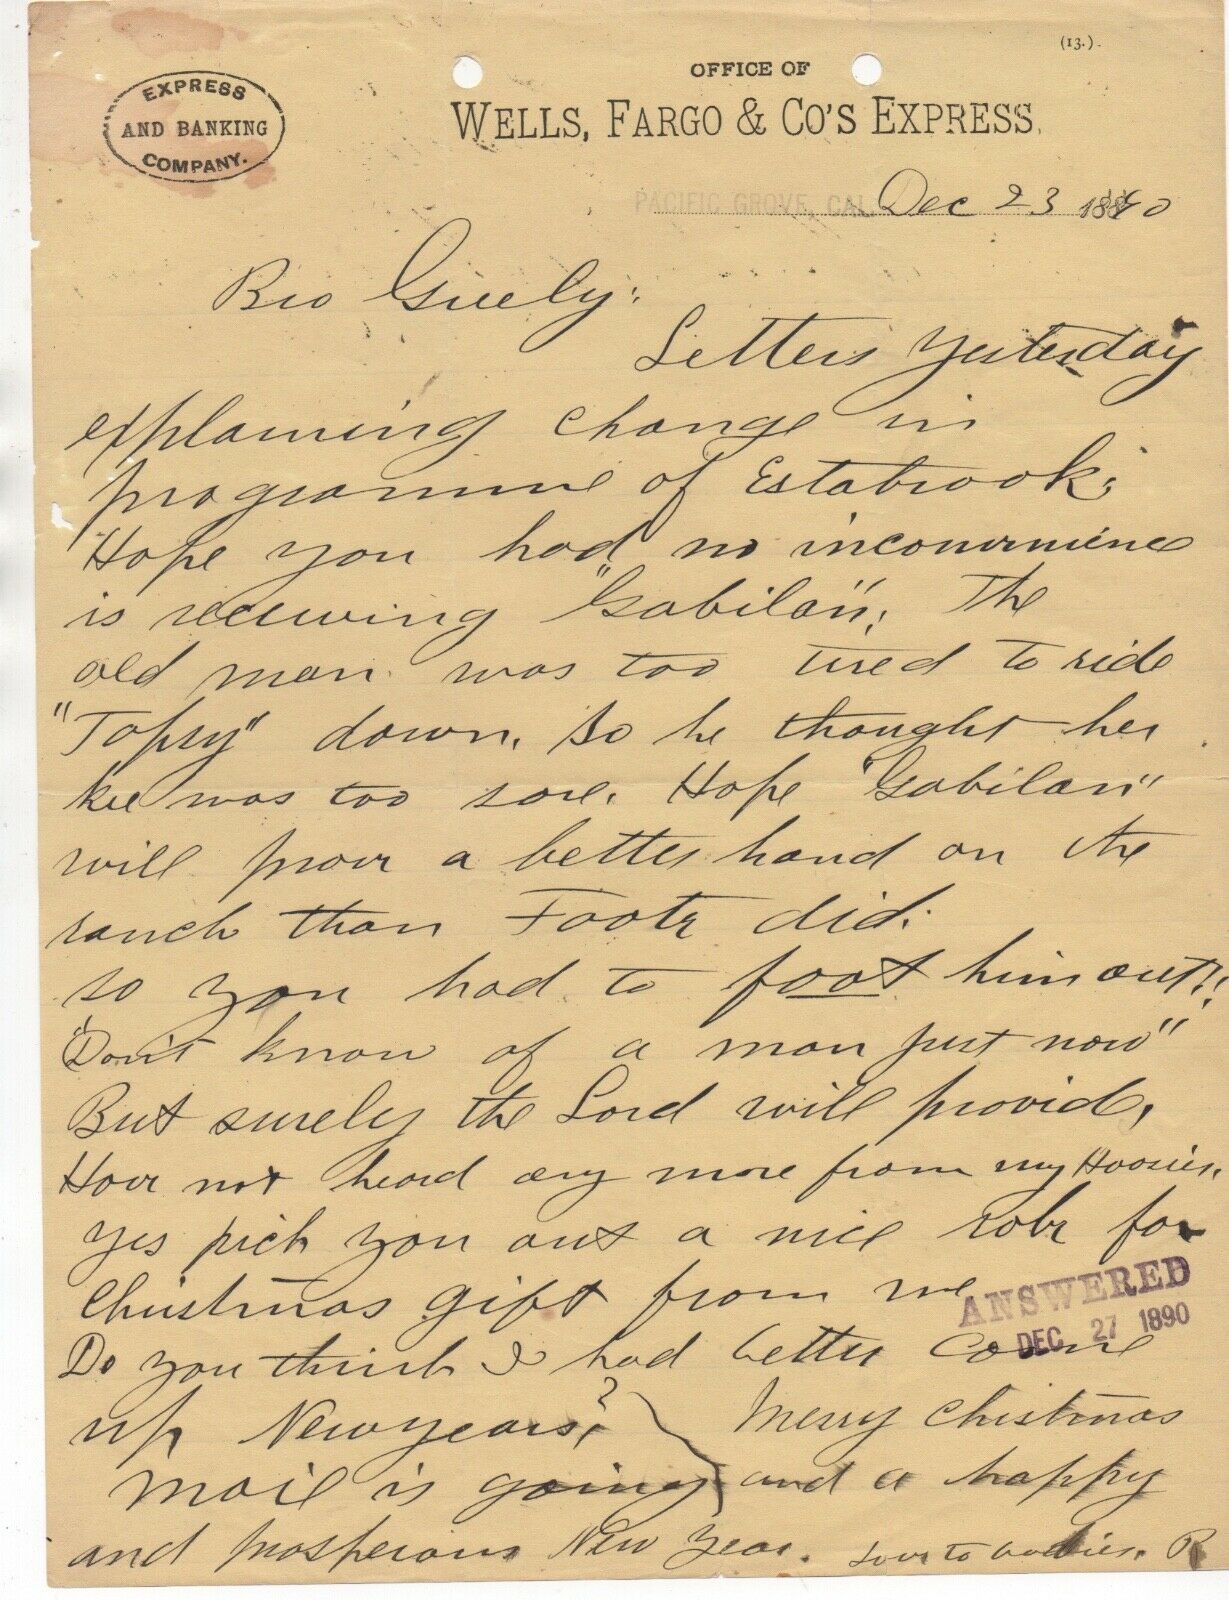 (13.)
EXPRESS
AND BANKING
COMPANY.
OFFICE OF
WELLS, FARGO & CO'S EXPRESS.
PACIFIC GROVE, CAL. Dec 23 1890
Bro Greely:
Letters yesterday
explaining change in
programme of Estabrook;
Hope you had no inconvenience
is receiving "Gabilan", The
old man was too tired to ride
"Topsy" down, So he thought her
was too sore. Hope "Gabilan"
will prove a better hand on the
ranch than Foote did.
so you had to foot him out!!
"Don't know of a man just now"
But surely the Lord will provide,
Have not heard any more from my Hoosier.
Yes pick you out a nice robe for
Christmas gift from me
ANSWERED
DEC 27 1890
Do you think I had better come
up Newyears?
Merry Christmas
mail is going and a happy
and prosperous New Year. Love to R